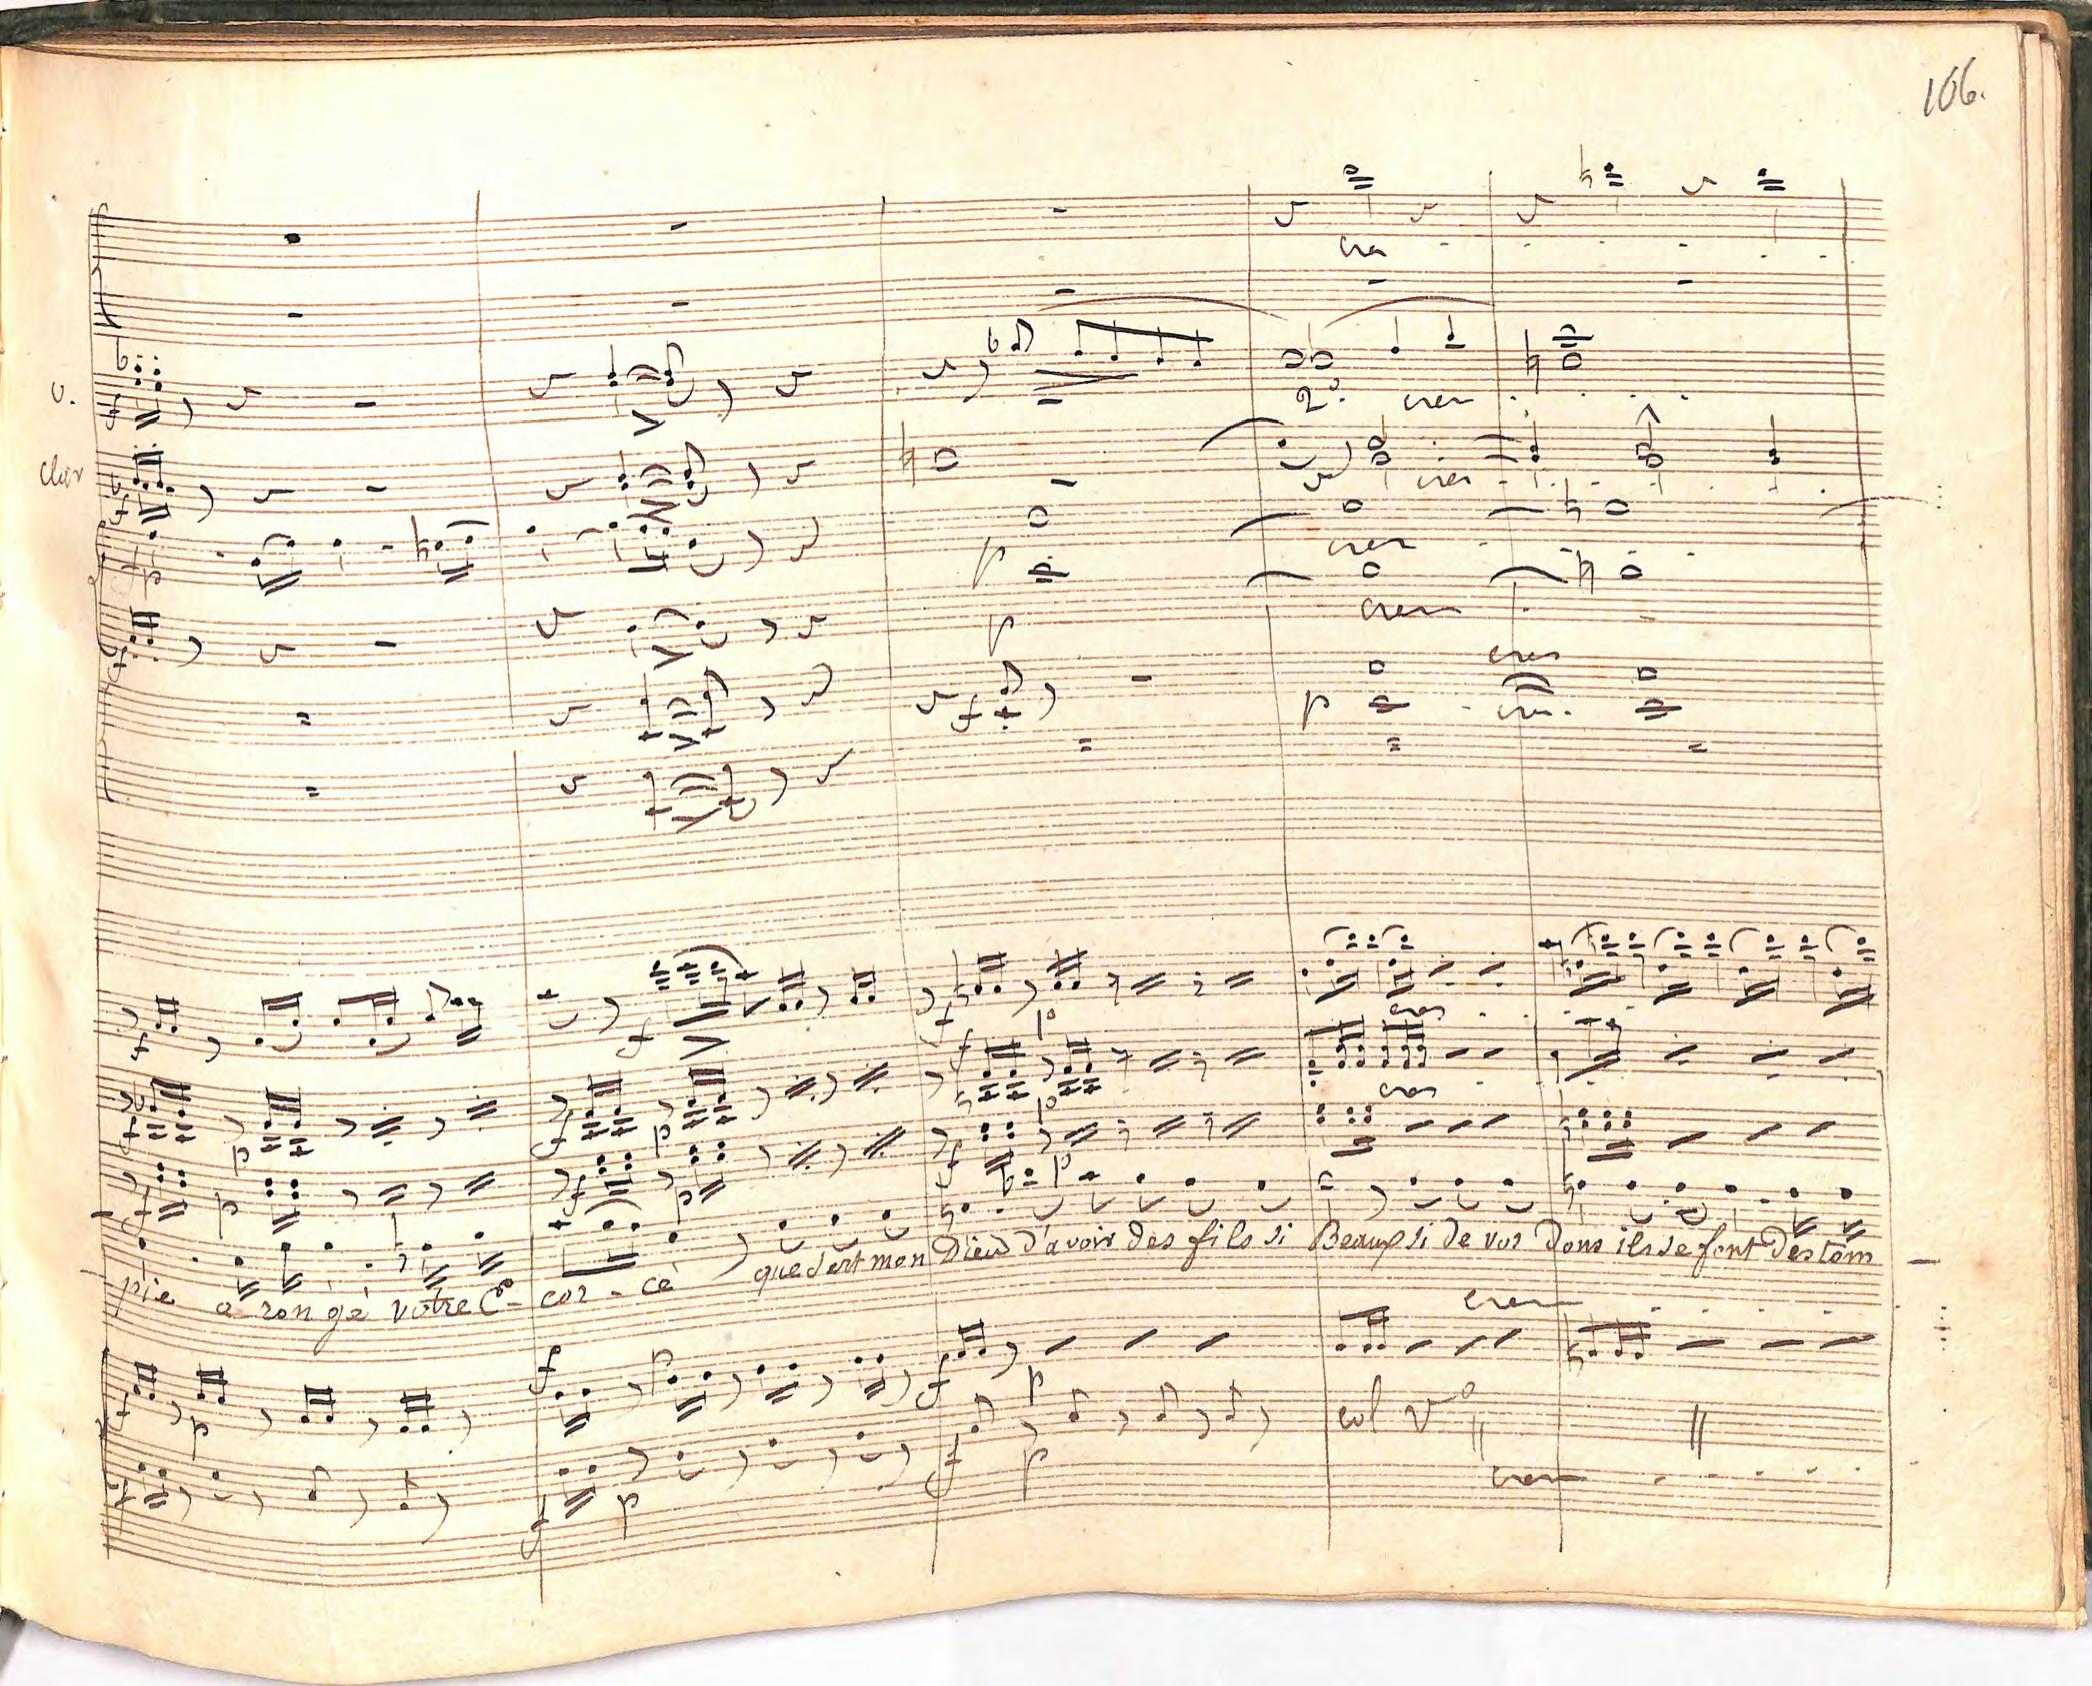 106.
cres
U.
2º. cres
Clar
cres
p cres
p cres
cres
f p cres
f p
cres
f p f p f p cres
f p f p f p
pie a rongé votre É - cor - cé que sert mon Dieu d'avoir des fils si Beaux si de vos Dons ils se font des tom
cres
f p f p f p
col Vº
f f p f p
cres